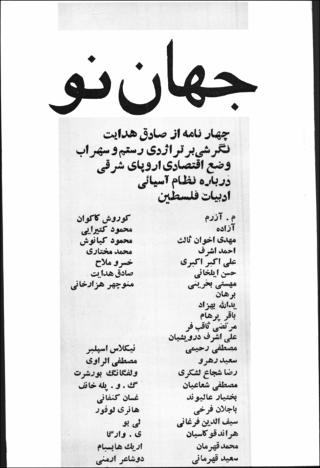 جهان نو
چهار نامه از صادق هدایت
نگرشی بر تراژدی رستم و سهراب
وضع اقتصادی اروپای شرقی
درباره نظام آسیائی
ادبیات فلسطین
م . آزرم
آزاده
مهدی اخوان ثالث
احمد اشرف
علی اکبر اکبری
حسن ایلخانی
مهستی بحرینی
برهان
یدالله بهزاد
باقر پرهام
مرتضی ثاقب فر
علی اشرف درویشیان
مصطفی رحیمی
سعید رهرو
رضا شجاع لشکری
مصطفی شعاعیان
بختیار عالیوند
باجلان فرخی
سیف الدین فرغانی
هراند قوکاسیان
محمد قهرمان
سعید قهرمانی
کوروش کاکوان
محمود کتیرایی
محمود کیانوش
محمد مختاری
خسرو ملاح
صادق هدایت
منوچهر هزارخانی
نیکلاس اسپلبر
مصطفی الراوی
ولفگانگ بورشرت
گ . و . پله خانف
غسان کنفانی
هانری لوفور
لی پو
ی . وارگا
اریک هابسبام
دوشاعر ارمنی